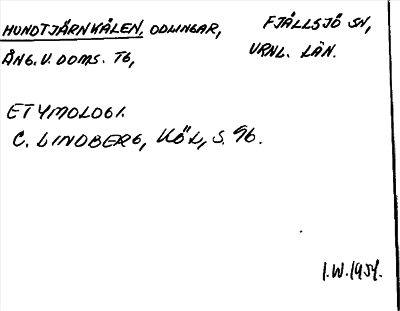 HUNDTJÄRNKÅLEN, ODLINGAR, FJÄLLSJÖ SN,
ÅNG. V. DOMS. TG, VRNL. LÄN.
ETYMOLOGI.
C. LINDBERG, KÖL, S. 96.
I.W. 1954.